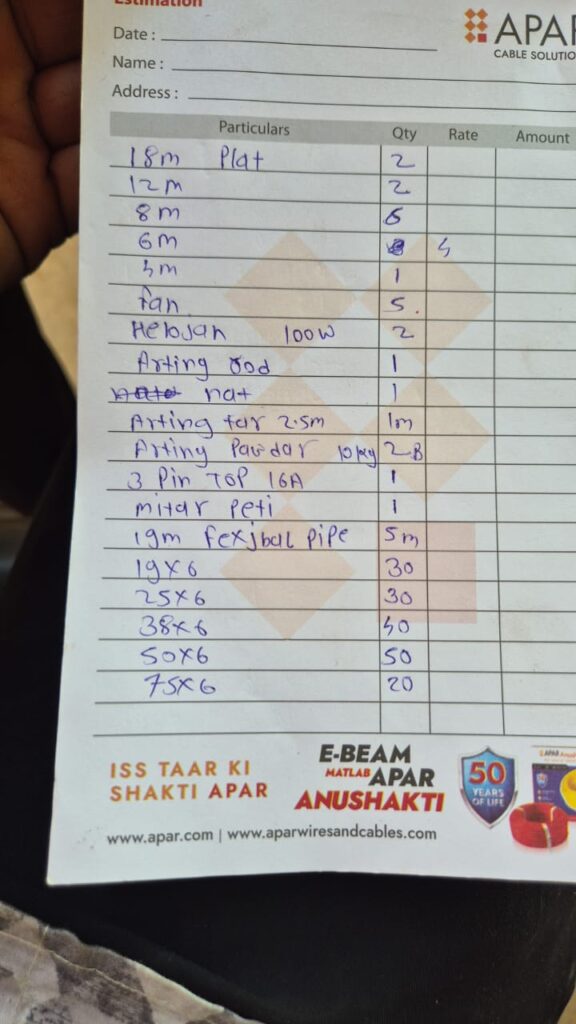 Estimation
APAR
CABLE SOLUTIO
Date :
Name :
Address :
Particulars Qty Rate Amount
18m Plat 2
12m 2
8m 6
6m 4
4m 1
fan 5
Helojan 100W 2
Arting rod 1
nat 1
Arting tar 2.5m 1m
Arting Pavdar 10kg 2B
3 Pin TOP 16A 1
mitar Peti 1
19m fexjbal pipe 5m
19x6 30
25x6 30
38x6 40
50x6 50
75x6 20
ISS TAAR KI
SHAKTI APAR
E-BEAM
MATLAB APAR
ANUSHAKTI
50
YEARS
OF LIFE
www.apar.com | www.aparwiresandcables.com